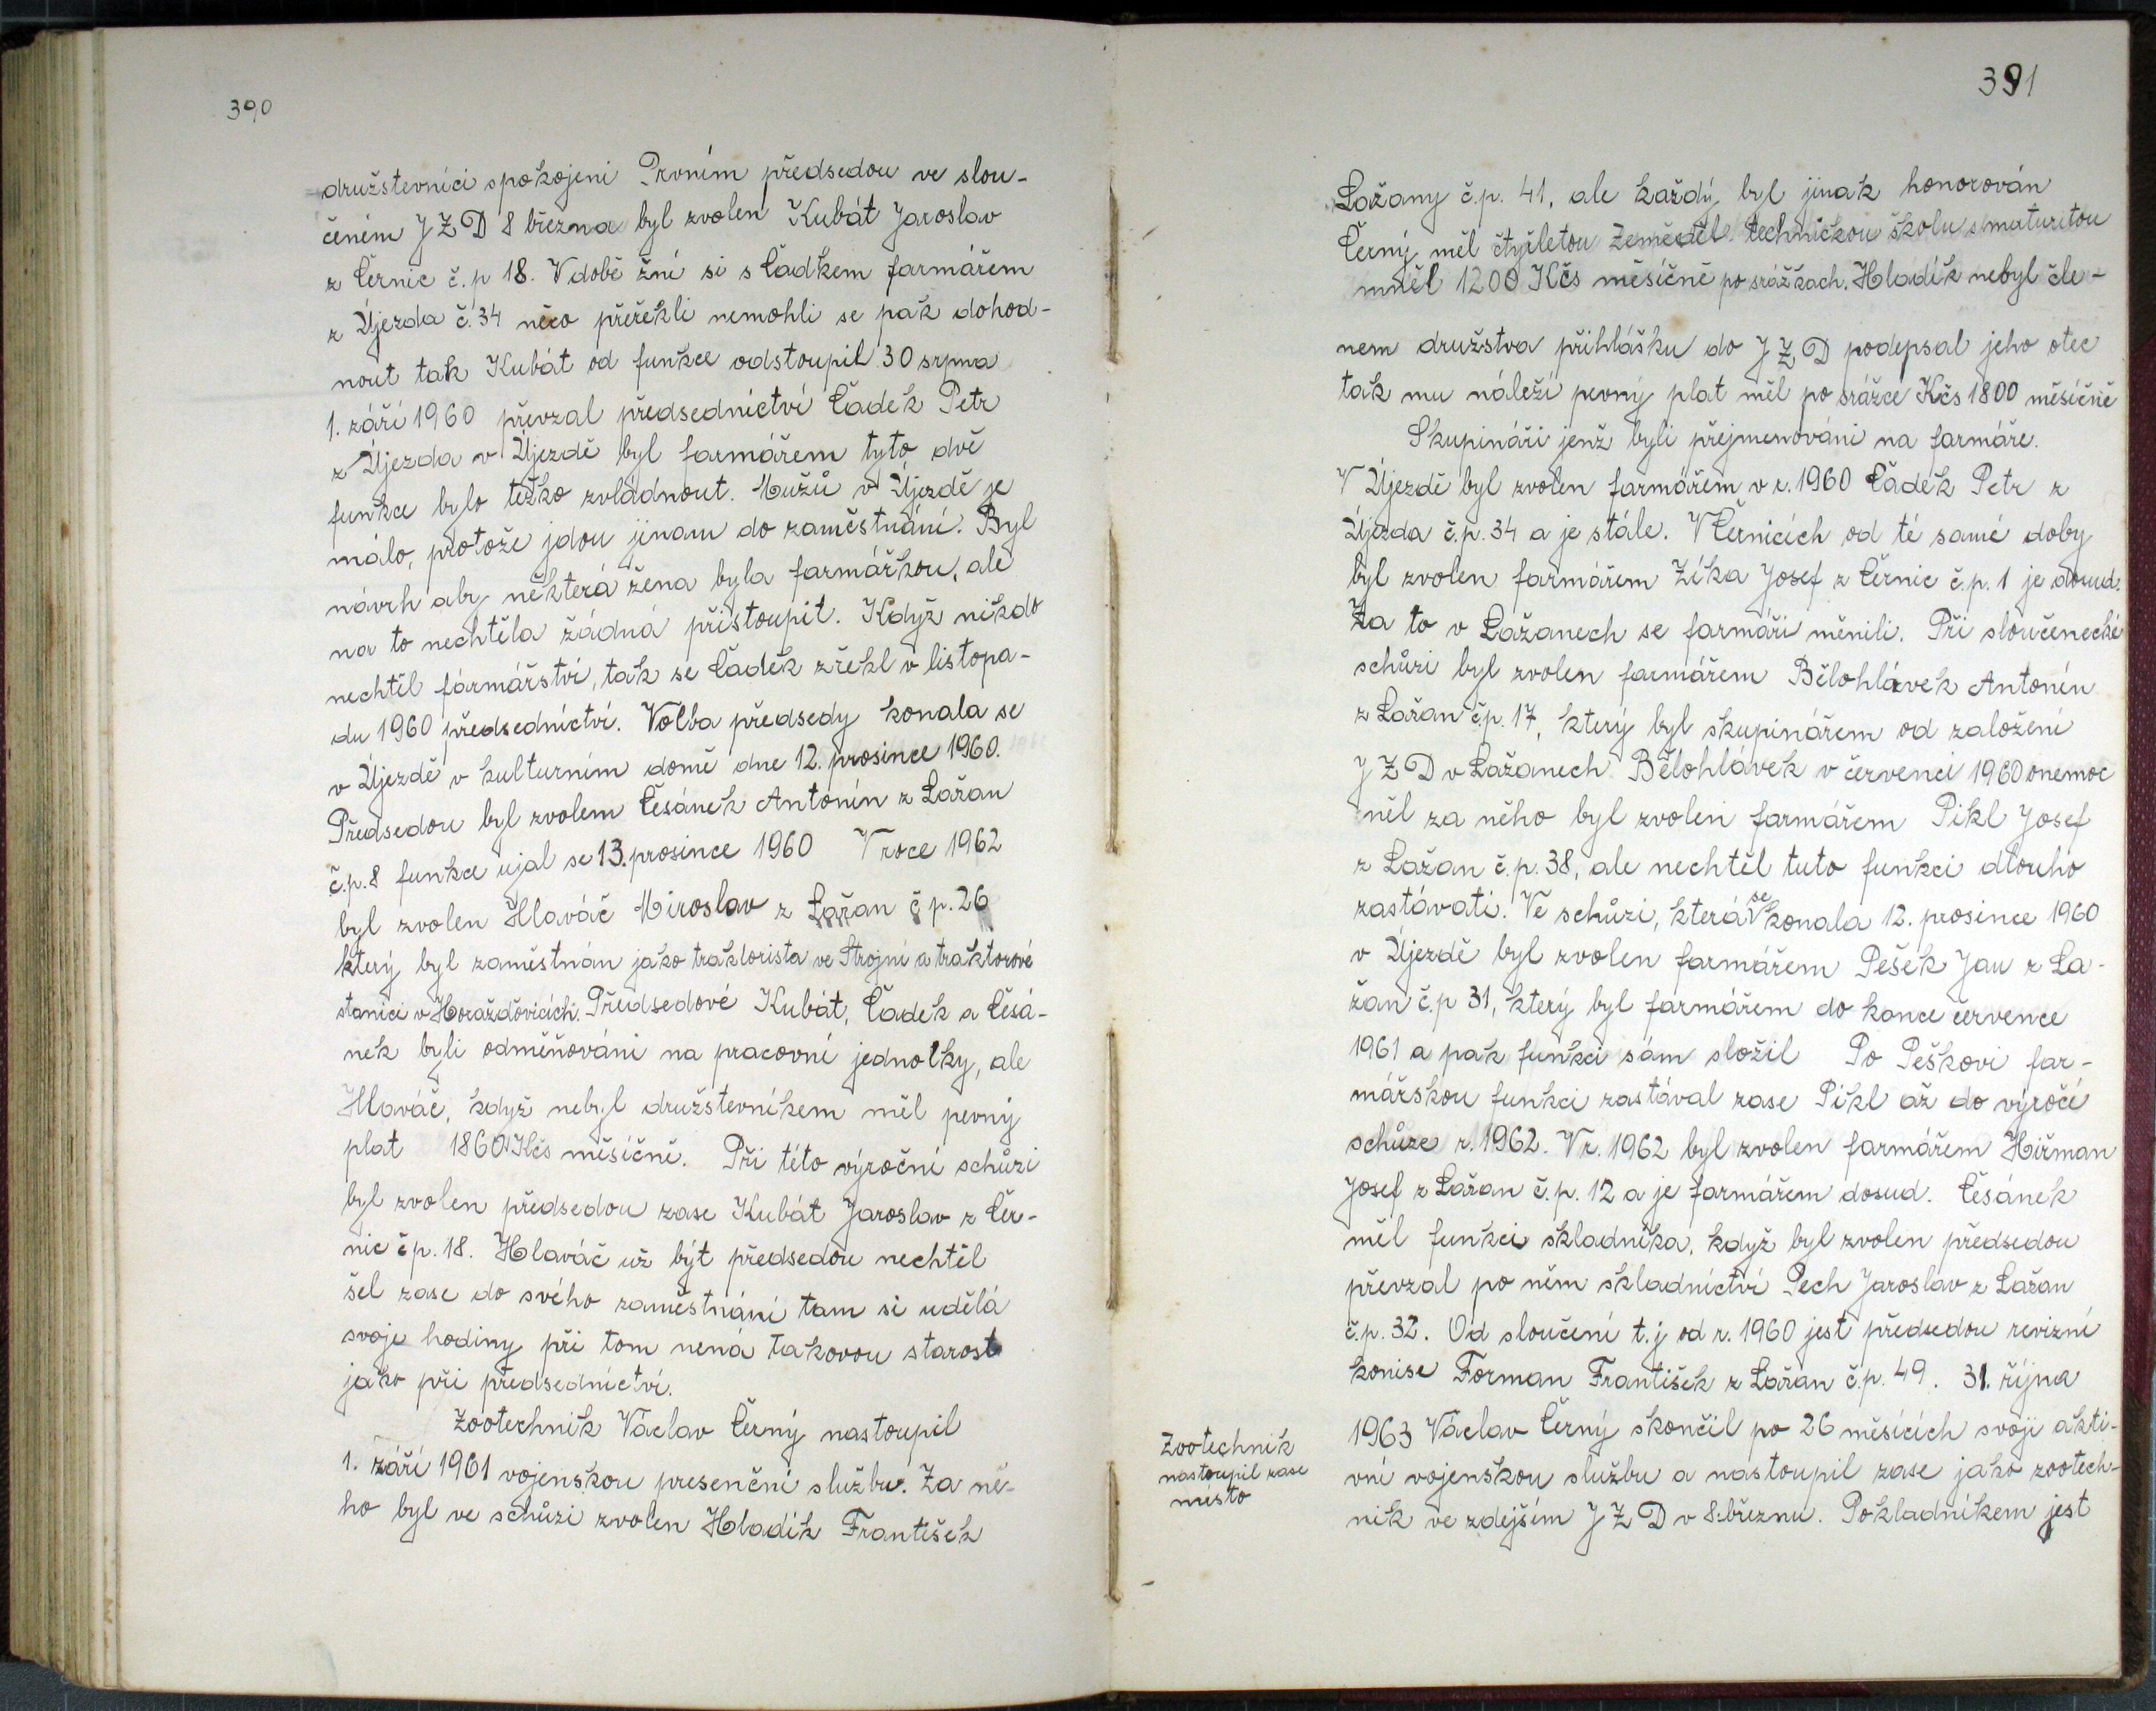 390
družstevníci spokojeni Prvním předsedou ve slou-
čeném JZD 8 března byl zvolen Kubát Jaroslav
z Černic č.p 18. V době žní si s Čadkem farmářem
z Újezda č.34 něco přeřekli nemohli se pak dohod-
nout tak Kubát od funkce odstoupil 30 srpna
1. září 1960 převzal předsednictví Čadek Petr
z Újezda v Újezdě byl farmářem tyto dvě
funkce bylo težko zvládnout. Mužů v Újezdě je
málo, protože jdou jinam do zaměstnání. Byl
návrh aby některá žena byla farmářkou, ale
na to nechtěla žádná přistoupit. Když nikdo
nechtěl farmářství, tak se Čadek zřekl v listopa-
du 1960 předsednictví. Volba předsedy konala se
v Újezdě v kulturním domě dne 12. prosince 1960.
Předsedou byl zvolem Česánek Antonín z Lažan
č.p.8 funkce ujal se 13.prosince 1960 V roce 1962
byl zvolen Hlaváč Miroslav z Lažan č p.26
který byl zaměstnán jako traktorista ve Strojní a traktorové
stanici v Horažďovicích. Předsedové Kubát, Čadek a Česá-
nek byli odměňováni na pracovní jednotky, ale
Hlaváč, když nebyl družstevníkem měl pevný
plat 1860 Kčs měsíčně. Při této výroční schůzi
byl zvolen předsedou zase Kubát Jaroslav z Čer-
nic čp.18. Hlaváč už být předsedou nechtěl
šel zase do svého zaměstnání tam si udělá
svoje hodiny při tom nená takovou starost
jako při předsednictví.
Zootechnik Václav Černý nastoupil
1. září 1961 vojenskou presenční službu. Za ně-
ho byl ve schůzi zvolen Hladík František
391
Lažany č.p. 41, ale každý byl jinak honorován
Černý měl čtyřletou Zeměděl. technickou školu s maturitou
měl 1200 Kčs měsíčně po srážkach. Hladík nebyl čle-
nem družstva přihlášku do JZD podepsal jeho otec
tak mu náleží pevný plat měl po srážce Kčs 1800 měsíčně
Skupináři jenž byli přejmenováni na farmáře.
V Újezdě byl zvolen farmářem v r.1960 Čadek Petr z
Újezda č.p.34 a je stále. V Černicích od té samé doby
byl zvolen farmářem Zíka Josef z Černic č.p.1 je dosud.
Za to v Lažanech se farmáři měnili. Při sloučenecké
schůzi byl zvolen farmářem Bělohlávek Antonín
z Lažan čp.17, který byl skupinářem od založení
JZD v Lažanech. Bělohlávek v červenci 1960 onemoc
něl za něho byl zvolen farmářem Pikl Josef
z Lažan č.p.38, ale nechtěl tuto funkci dlouho
zastávati. Ve schůzi, která se konala 12. prosince 1960
v Újezdě byl zvolen farmářem Pešek Jan z La-
žan č.p 31, který byl farmářem do konce července
1961 a pak funkci sám složil Po Peškovi far-
mářskou funkci zastával zase Pikl až do výročí
schůze r.1962. V r. 1962 byl zvolen farmářem Hiřman
Josef z Lažan č.p.12 a je farmářem dosud. Česánek
měl funkci skladníka, když byl zvolen předsedou
převzal po něm skladnictví Pech Jaroslav z Lažan
č.p.32. Od sloučení t.j od r.1960 jest předsedou revizní
komise Forman František z Lažan č.p.49. 31. října
1963 Václav Černý skončil po 26 měsících svoji akti-
vní vojenskou službu a nastoupil zase jako zootech-
nik ve zdejším JZD v 8.březnu. Pokladníkem jest
Zootechnik
nastoupil zase
místo